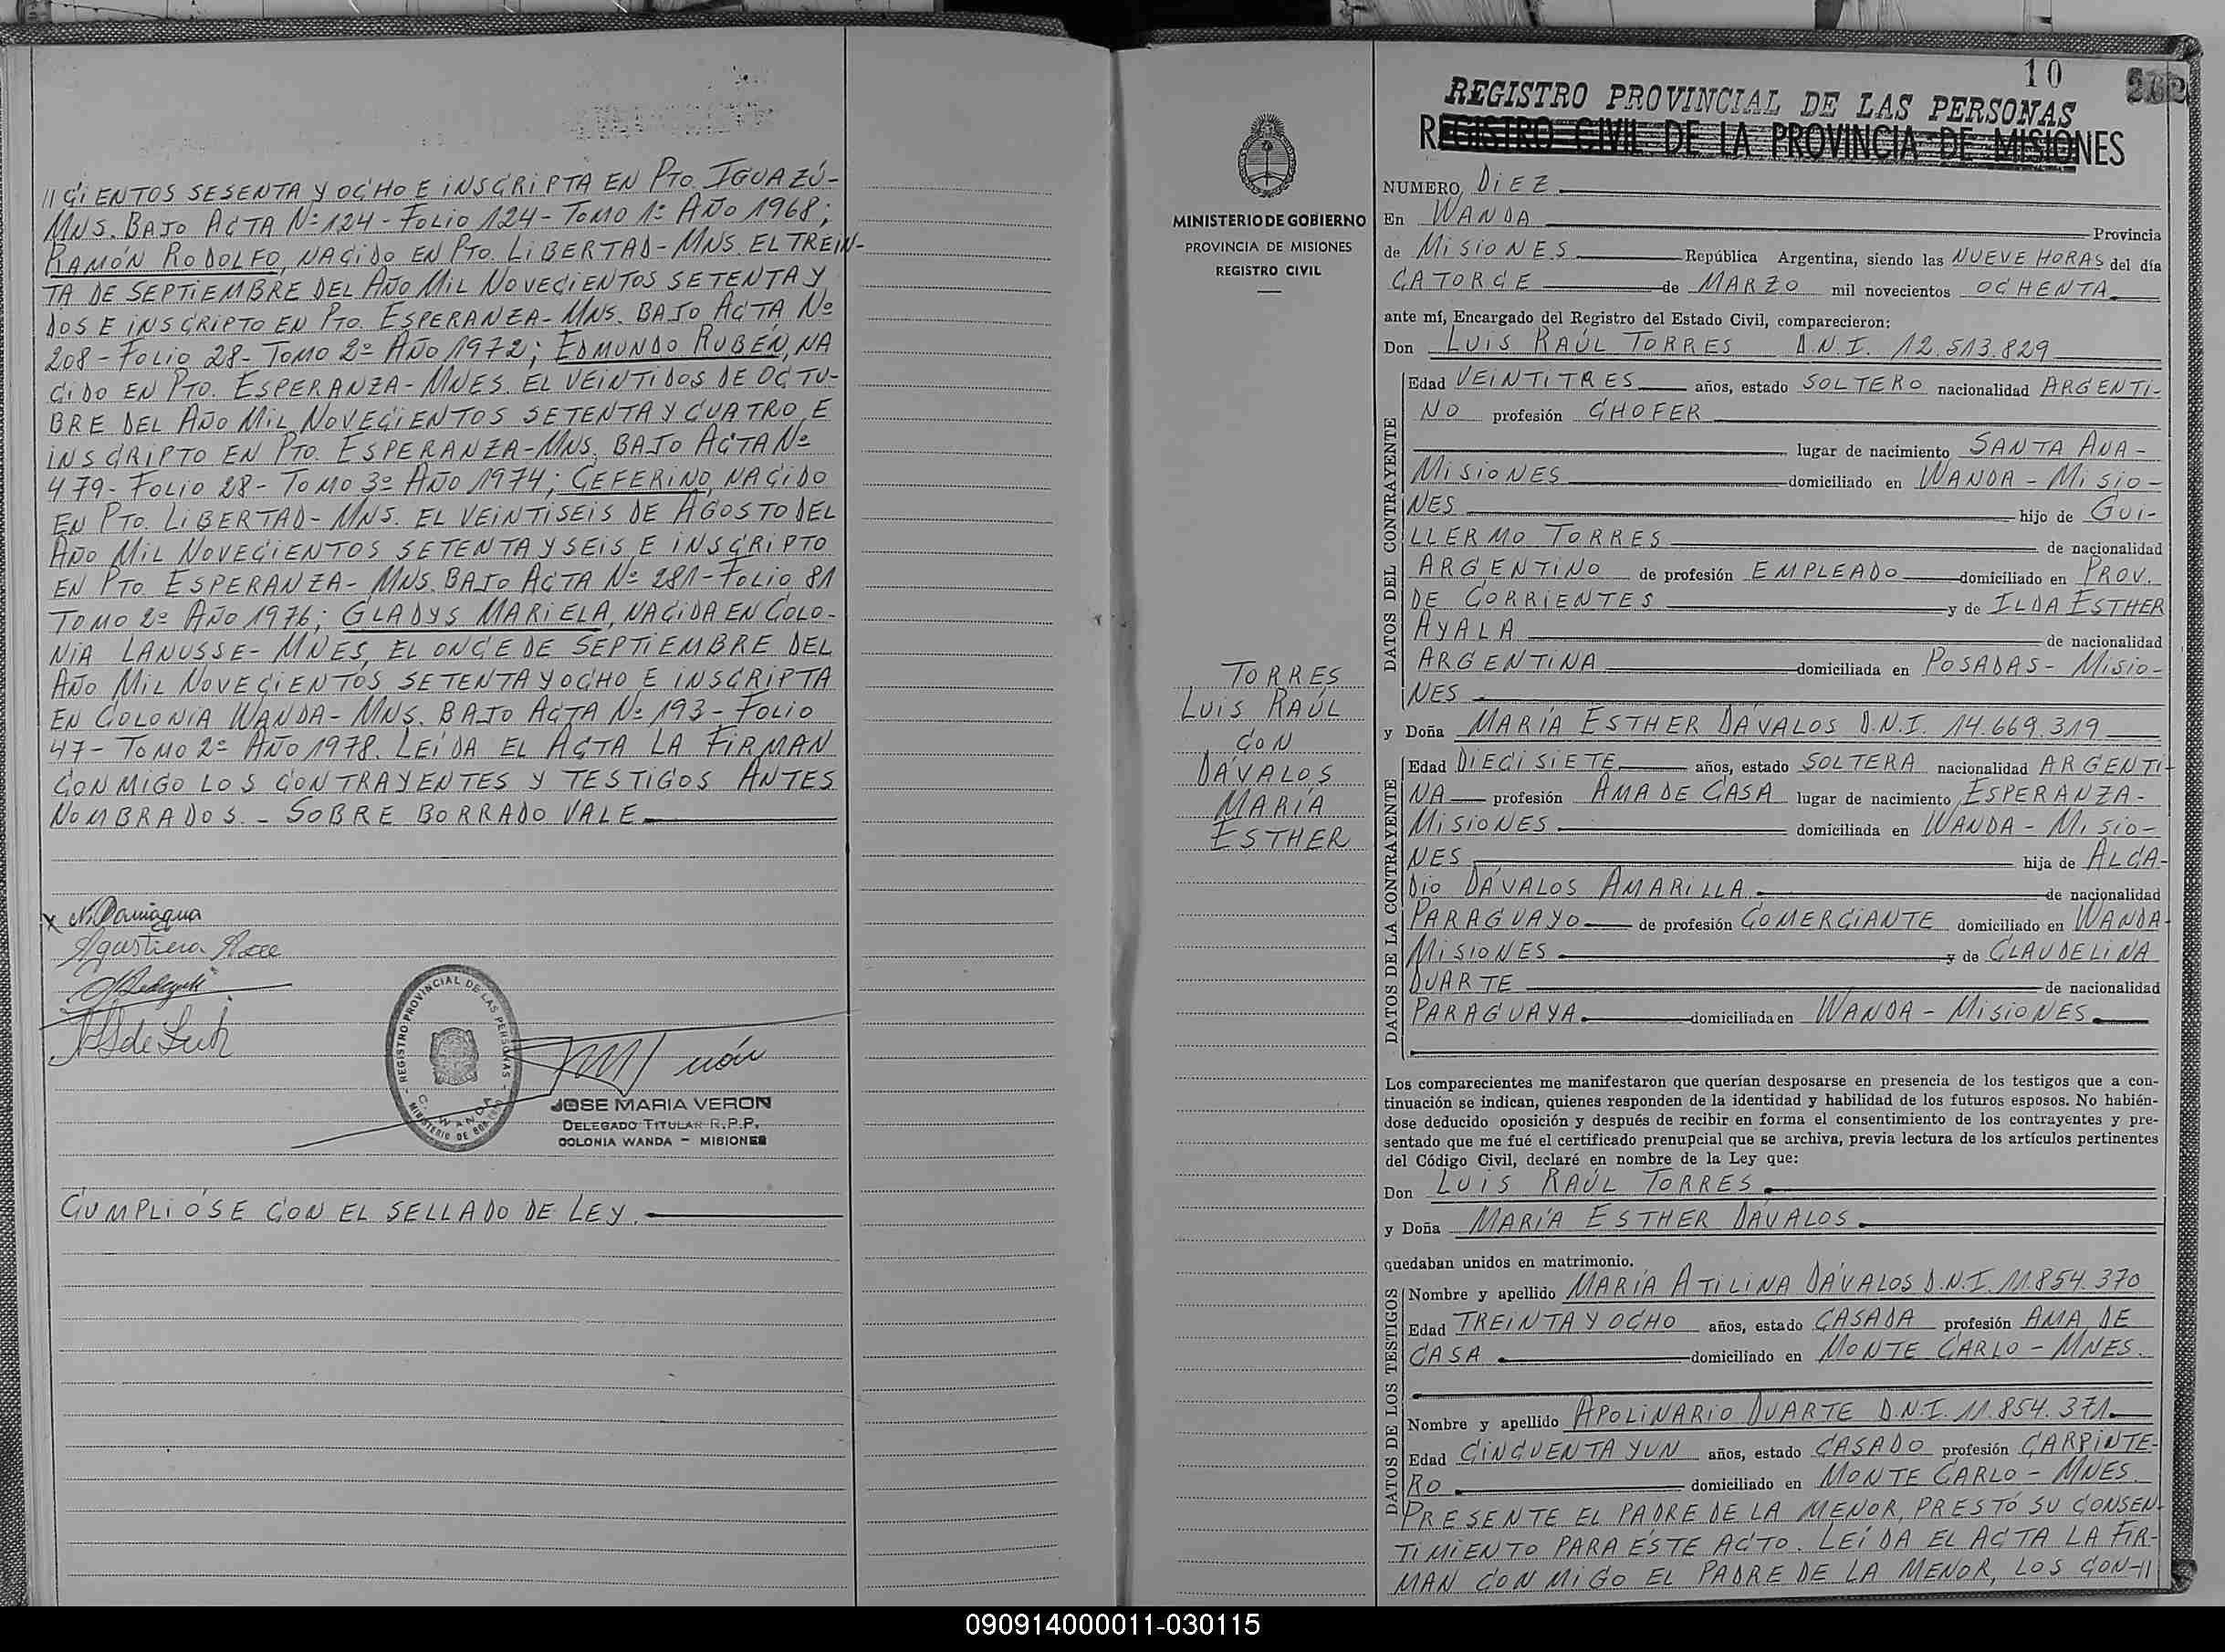 //CIENTOS SESENTA Y OCHO E INSCRIPTA EN PTO. IGUAZÚ-
MNS. BAJO ACTA Nº 124 - FOLIO 124 - TOMO 1º AÑO 1968;
RAMÓN RODOLFO, NACIDO EN PTO. LIBERTAD - MNS. EL TREIN-
TA DE SEPTIEMBRE DEL AÑO MIL NOVECIENTOS SETENTA Y
DOS E INSCRIPTO EN PTO. ESPERANZA - MNS. BAJO ACTA Nº
208 - FOLIO 28 - TOMO 2º AÑO 1972; EDMUNDO RUBÉN, NA
CIDO EN PTO. ESPERANZA - MNES. EL VEINTIDOS DE OCTU-
BRE DEL AÑO MIL NOVECIENTOS SETENTA Y CUATRO E
INSCRIPTO EN PTO. ESPERANZA - MNS. BAJO ACTA Nº
479 - FOLIO 28 - TOMO 3º AÑO 1974; CEFERINO, NACIDO
EN PTO. LIBERTAD - MNS. EL VEINTISEIS DE AGOSTO DEL
AÑO MIL NOVECIENTOS SETENTA Y SEIS E INSCRIPTO
EN PTO. ESPERANZA - MNS. BAJO ACTA Nº 281 - FOLIO 81
TOMO 2º AÑO 1976; GLADYS MARIELA, NACIDA EN COLO-
NIA LANUSSE - MNES, EL ONCE DE SEPTIEMBRE DEL
AÑO MIL NOVECIENTOS SETENTA Y OCHO E INSCRIPTA
EN COLONIA WANDA - MNS. BAJO ACTA Nº 193 - FOLIO
47 - TOMO 2º AÑO 1978. LEÍDA EL ACTA LA FIRMAN
CONMIGO LOS CONTRAYENTES Y TESTIGOS ANTES
NOMBRADOS. - SOBRE BORRADO VALE
x N. Paniagua
Agustina
REGISTRO PROVINCIAL DE LAS PERSONAS
C. WANDA
MINISTERIO DE GOBIERNO
JOSE MARIA VERON
DELEGADO TITULAR R.P.P.
COLONIA WANDA - MISIONES
CUMPLIÓSE CON EL SELLADO DE LEY.
MINISTERIO DE GOBIERNO
PROVINCIA DE MISIONES
REGISTRO CIVIL
TORRES
LUIS RAÚL
CON
DÁVALOS
MARÍA
ESTHER
10
REGISTRO PROVINCIAL DE LAS PERSONAS
REGISTRO CIVIL DE LA PROVINCIA DE MISIONES
NUMERO DIEZ
En WANDA Provincia
de MISIONES República Argentina, siendo las NUEVE HORAS del día
CATORCE de MARZO mil novecientos OCHENTA
ante mí, Encargado del Registro del Estado Civil, comparecieron:
Don LUIS RAÚL TORRES D.N.I. 12.513.829
DATOS DEL CONTRAYENTE
Edad VEINTITRES años, estado SOLTERO nacionalidad ARGENTI-
NO profesión CHOFER
lugar de nacimiento SANTA ANA -
MISIONES domiciliado en WANDA - MISIO-
NES hijo de GUI-
LLERMO TORRES de nacionalidad
ARGENTINO de profesión EMPLEADO domiciliado en PROV.
DE CORRIENTES y de ILDA ESTHER
AYALA de nacionalidad
ARGENTINA domiciliada en POSADAS - MISIO-
NES
y Doña MARÍA ESTHER DÁVALOS D.N.I. 14.669.319
DATOS DE LA CONTRAYENTE
Edad DIECISIETE años, estado SOLTERA nacionalidad ARGENTI-
NA profesión AMA DE CASA lugar de nacimiento ESPERANZA -
MISIONES domiciliada en WANDA - MISIO-
NES hija de ALCA-
DIO DÁVALOS AMARILLA de nacionalidad
PARAGUAYO de profesión COMERCIANTE domiciliado en WANDA-
MISIONES y de CLAUDELINA
DUARTE de nacionalidad
PARAGUAYA domiciliada en WANDA - MISIONES
Los comparecientes me manifestaron que querían desposarse en presencia de los testigos que a con-
tinuación se indican, quienes responden de la identidad y habilidad de los futuros esposos. No habién-
dose deducido oposición y después de recibir en forma el consentimiento de los contrayentes y pre-
sentado que me fué el certificado prenupcial que se archiva, previa lectura de los artículos pertinentes
del Código Civil, declaré en nombre de la Ley que:
Don LUIS RAÚL TORRES
y Doña MARÍA ESTHER DÁVALOS
quedaban unidos en matrimonio.
DATOS DE LOS TESTIGOS
Nombre y apellido MARÍA ATILINA DÁVALOS D.N.I. 11.854.370
Edad TREINTA Y OCHO años, estado CASADA profesión AMA DE
CASA domiciliado en MONTE CARLO - MNES.
Nombre y apellido APOLINARIO DUARTE D.N.I. 11.854.371
Edad CINCUENTA Y UN años, estado CASADO profesión CARPINTE-
RO domiciliado en MONTE CARLO - MNES.
PRESENTE EL PADRE DE LA MENOR, PRESTÓ SU CONSEN-
TIMIENTO PARA ÉSTE ACTO. LEÍDA EL ACTA LA FIR-
MAN CONMIGO EL PADRE DE LA MENOR, LOS CON-//
090914000011-030115